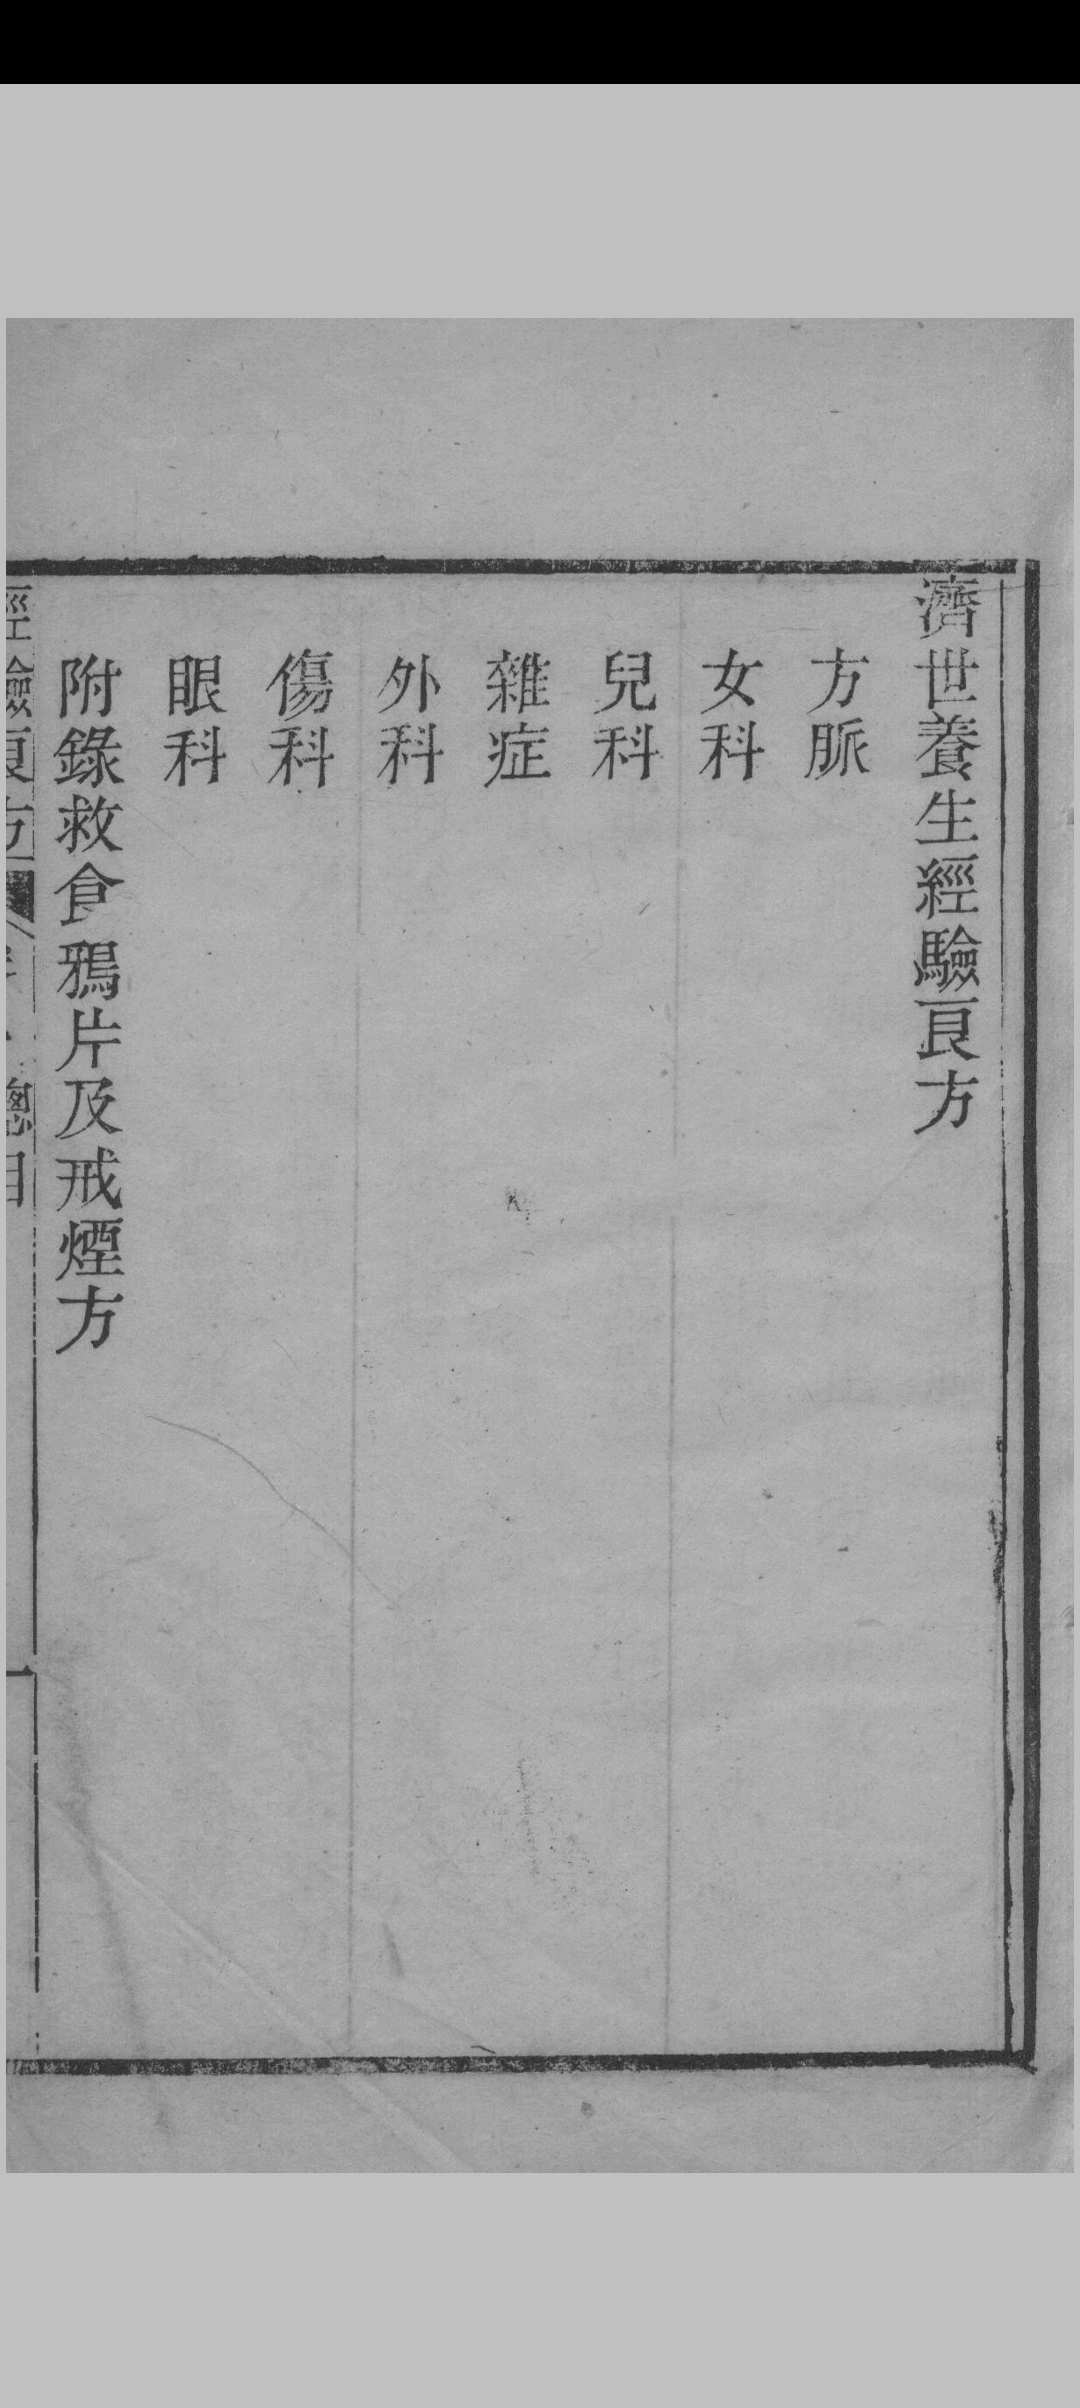 濟世養生經驗良方
方脈
女科
兒科
雜症
外科
傷科
眼科
附錄救食鴉片及戒煙方
經驗良方
總目
一